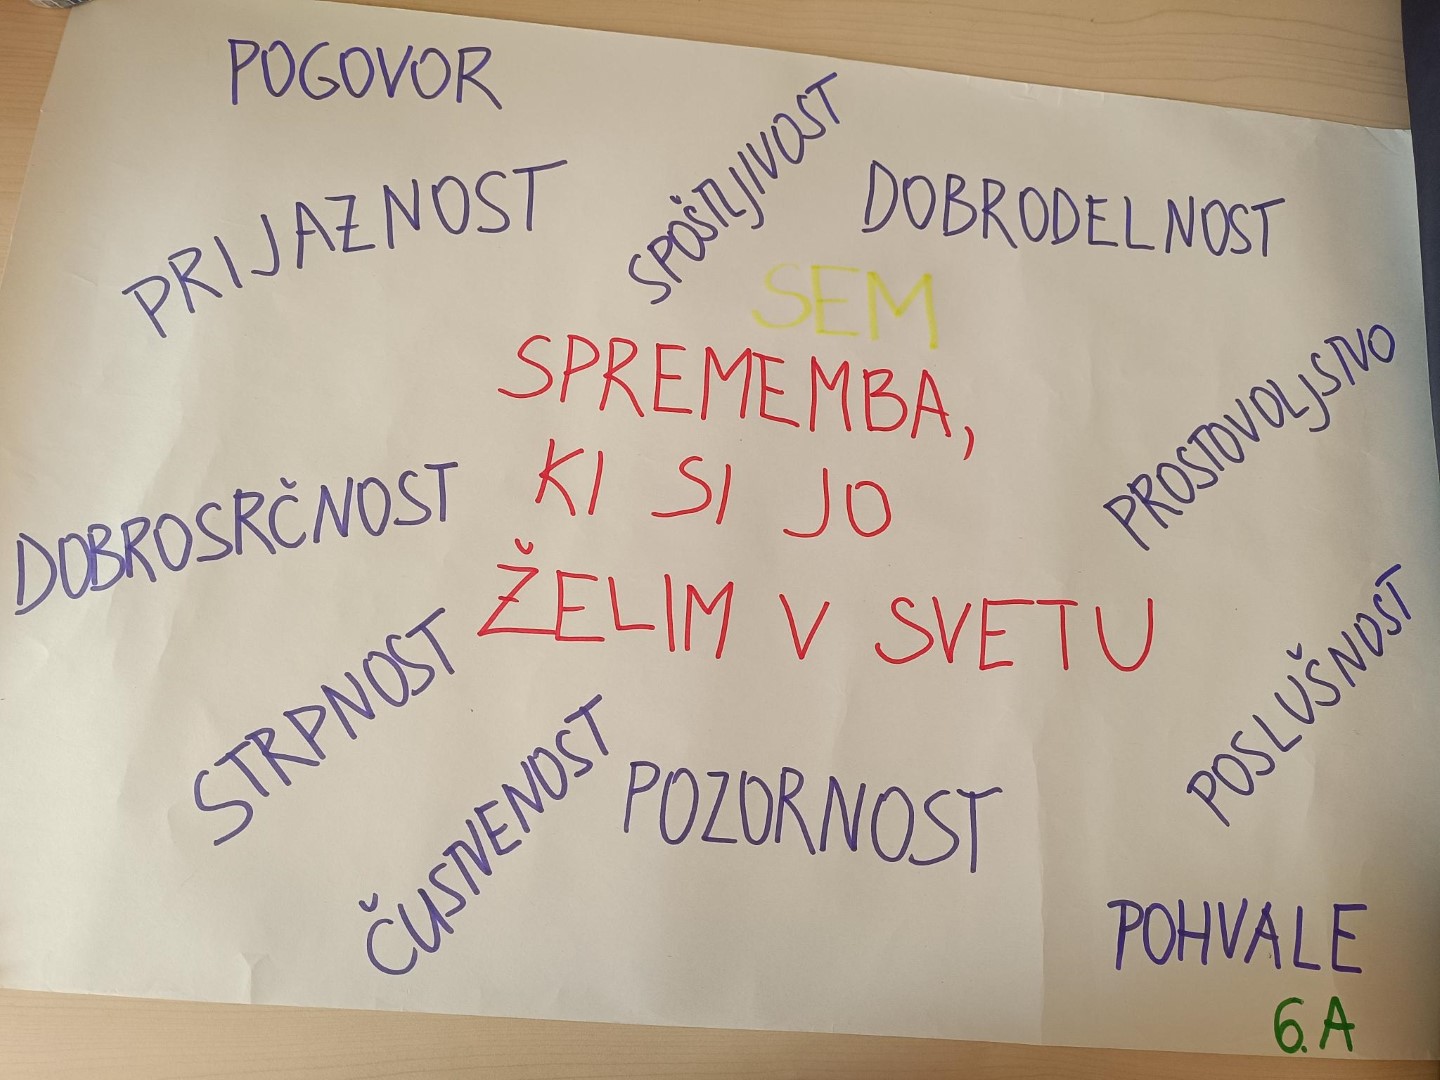 POGOVOR
PRIJAZNOST
SPOŠTLJIVOST
DOBRODELNOST
SEM
SPREMEMBA,
KI SI JO
ŽELIM V SVETU
PROSTOVOLJSTVO
DOBROSRČNOST
STRPNOST
ČUSTVENOST
POZORNOST
POSLUŠNOST
POHVALE
6.A